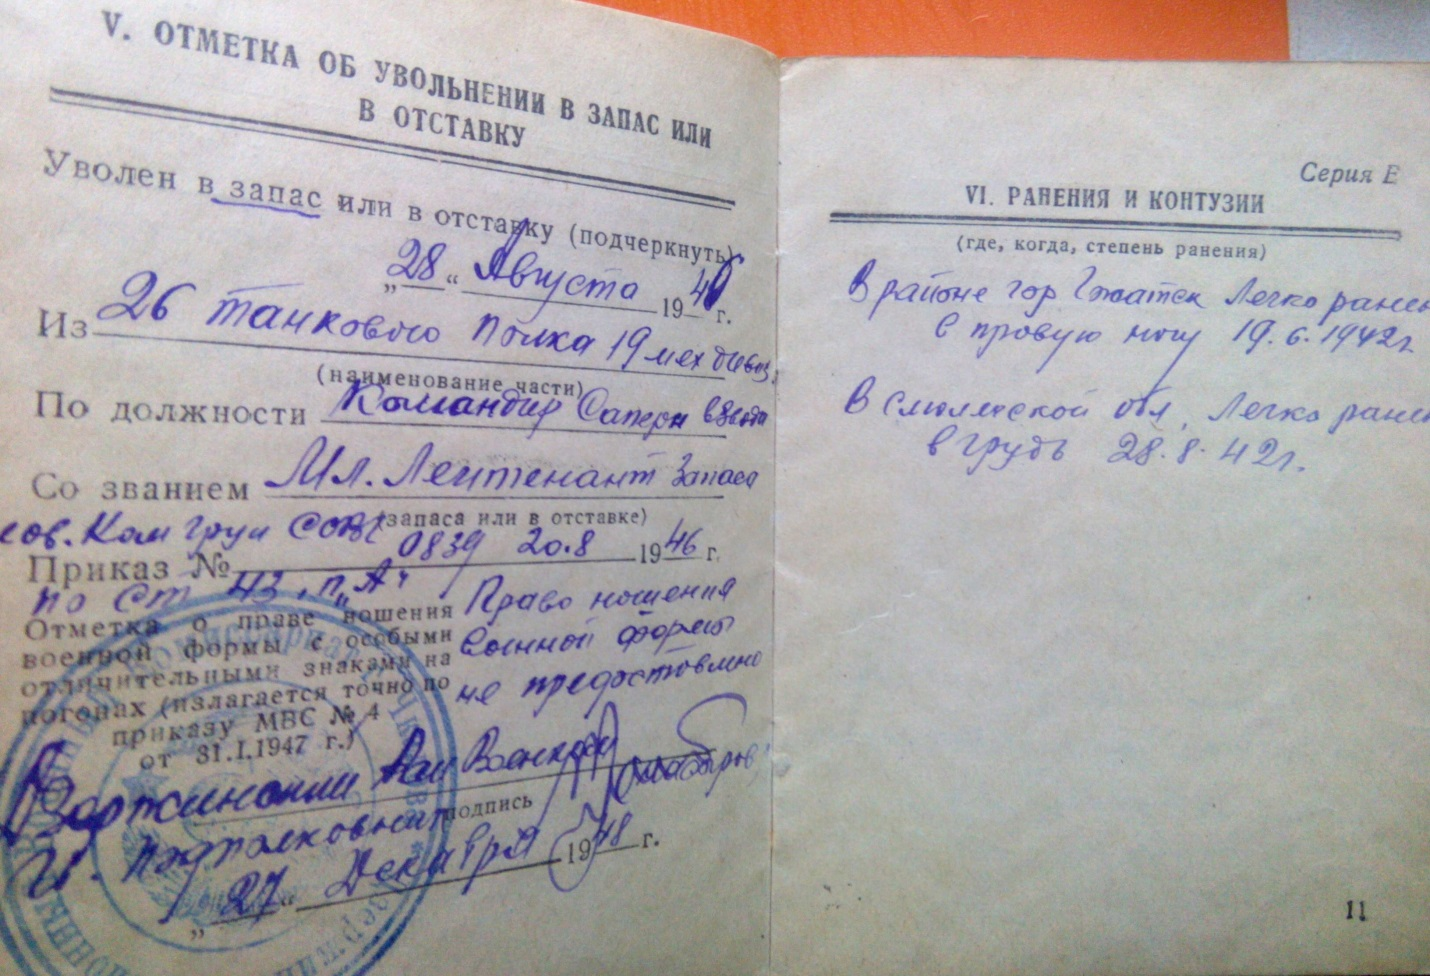 V. ОТМЕТКА ОБ УВОЛЬНЕНИИ В ЗАПАС ИЛИ
В ОТСТАВКУ
Уволен в запас или в отставку (подчеркнуть)
„28“ Августа 1946 г.
Из 26 танкового полка 19 мех дивиз.
(наименование части)
По должности Командир Саперн взвода
Со званием Мл. Лейтенант Запаса
(запаса или в отставке)
Ком груп
Приказ № 0839 20.8 1946 г.
по ст 43, п „А“
Отметка о праве ношения
военной формы с особыми
отличительными знаками на
погонах (излагается точно по
приказу МВС № 4
от 31.I.1947 г.)
Право ношения
военной формы
не предоставлено
подпись
Подполковник
„27“ Декабря 1948 г.
Серия Е
VI. РАНЕНИЯ И КОНТУЗИИ
(где, когда, степень ранения)
В районе гор Гжатск Легко ранен
в правую ногу 19.6.1942г
В Смоленской обл, Легко ранен
в грудь 28.8.42г.
11